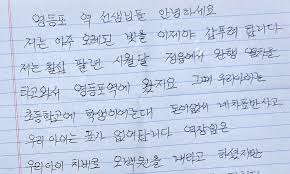 영등포 역 선생님들 안녕하세요
저는 아주 오래된 빚을 이제야 갚푸려 합니다
저는 팔십 팔년 시월달 정읍에서 완행 열차를
타고와서 영등포역에 왔지요 그때 우리아이는
초등학고에 학생이여는대 돈이없서 내차표만사고
우리 아이는 표가 없어답니다 역장님은
우리아이 차비로 오백원을 내라고 하셨지만